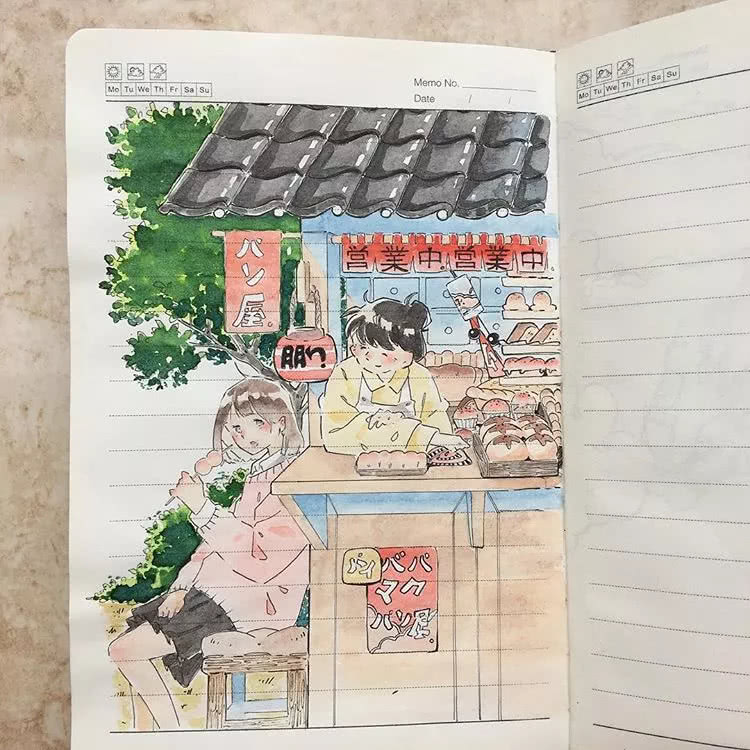 Mo Tu We Th Fr Sa Su
Memo No.
Date / /
Mo Tu We Th Fr Sa Su
パン屋
営業中営業中
パイ
パン屋